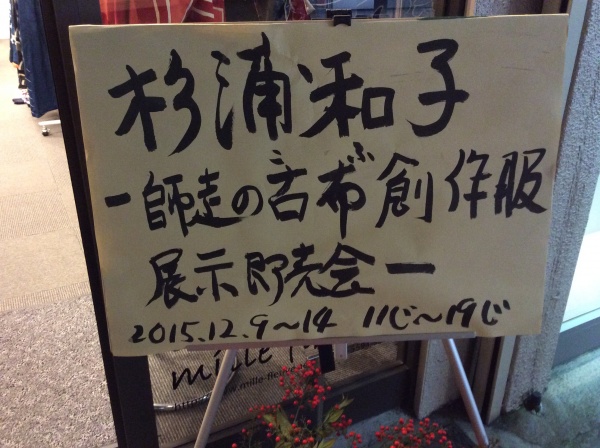 杉浦和子
ー師走の古布創作服
こ ふ
展示即売会ー
2015.12.9〜14 11じ〜19じ
mille
www.mille-fle